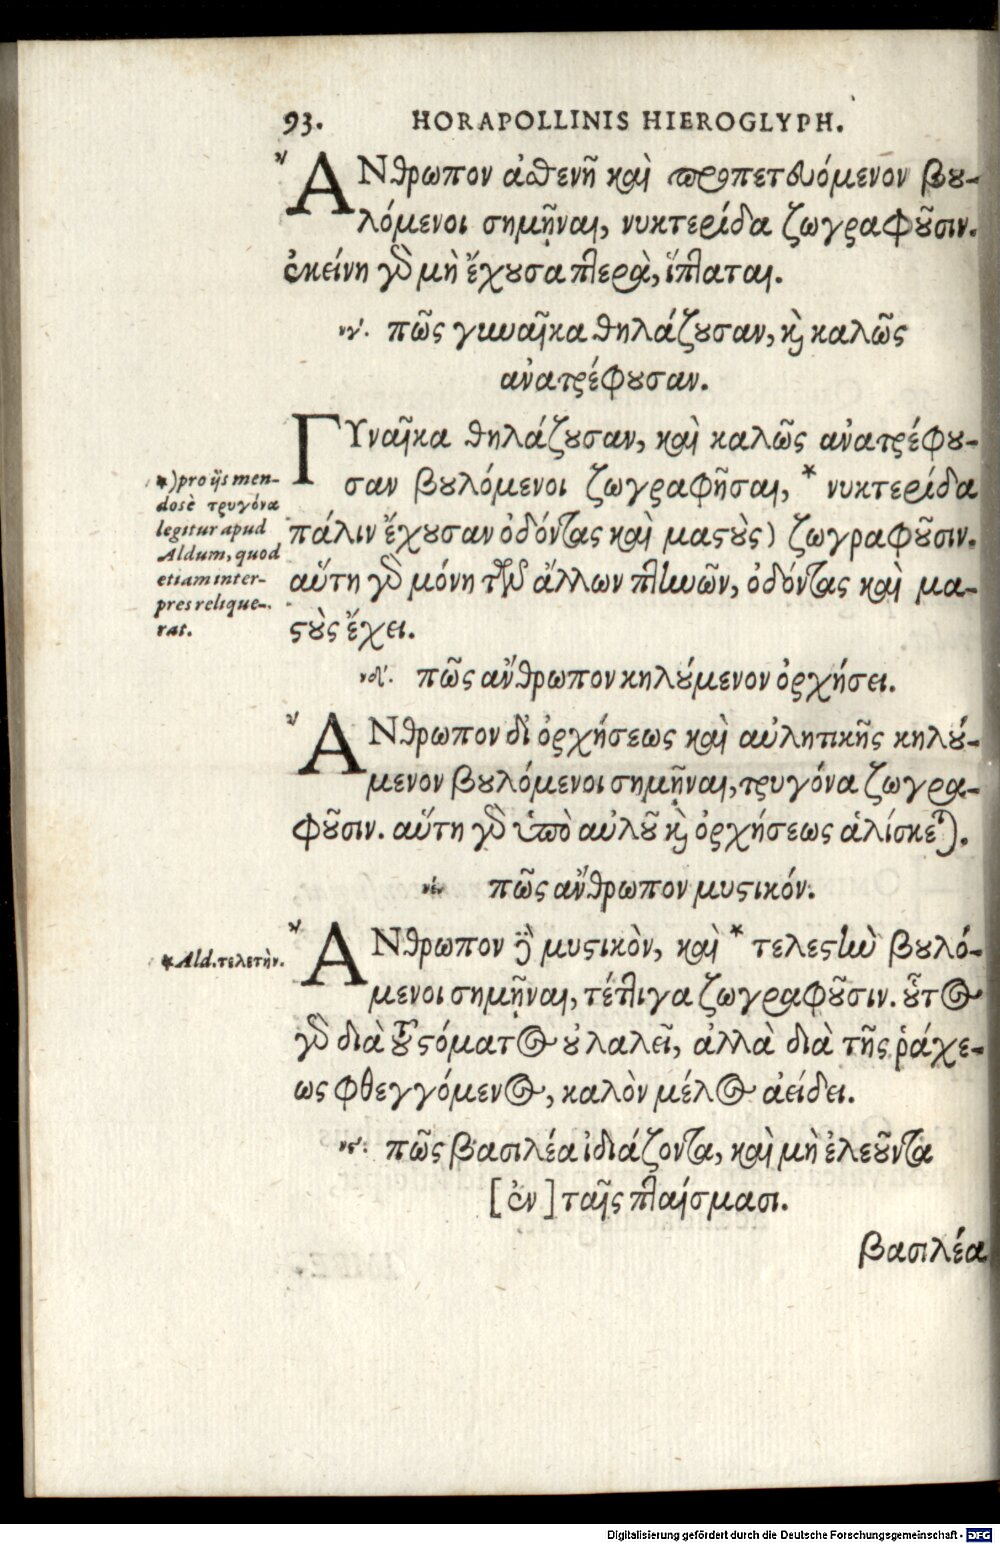 93. HORAPOLLINIS HIEROGLYPH.
ἌΝθρωπον ἀσθενῆ καὶ προπετευόμενον βου-
λόμενοι σημῆναι, νυκτερίδα ζωγραφοῦσιν.
ἐκείνη γὰρ μὴ ἔχουσα πτερὰ, ἵπταται.
νγ΄. πῶς γυναῖκα θηλάζουσαν, καὶ καλῶς
ἀνατρέφουσαν.
ΓΥναῖκα θηλάζουσαν, καὶ καλῶς ἀνατρέφου-
σαν βουλόμενοι ζωγραφῆσαι, * νυκτερίδα
πάλιν ἔχουσαν ὀδόντας καὶ μαστοὺς) ζωγραφοῦσιν.
αὕτη γὰρ μόνη τῶν ἄλλων πτηνῶν, ὀδόντας καὶ μα-
στοὺς ἔχει.
*)pro ijs men-
dosè τρυγόνα
legitur apud
Aldum, quod
etiam inter-
pres relique-
rat.
νδ΄. πῶς ἄνθρωπον κηλούμενον ὀρχήσει.
ἌΝθρωπον δι ὀρχήσεως καὶ αὐλητικῆς κηλού-
μενον βουλόμενοι σημῆναι, τρυγόνα ζωγρα-
φοῦσιν. αὕτη γὰρ ὑπὸ αὐλοῦ καὶ ὀρχήσεως ἁλίσκεται.
νέ. πῶς ἄνθρωπον μυστικόν.
ἌΝθρωπον δὲ μυστικὸν, καὶ * τελεστὴν βουλό-
μενοι σημῆναι, τέττιγα ζωγραφοῦσιν. οὗτος
γὰρ διὰ τοῦ στόματος οὐ λαλεῖ, ἀλλὰ διὰ τῆς ῥάχε-
ως φθεγγόμενος, καλὸν μέλος ἀείδει.
*Ald. τελετὴν.
νϛ΄. πῶς βασιλέα ἰδιάζοντα, καὶ μὴ ἐλεοῦντα
[ἐν] ταῖς πταίσμασι.
βασιλέα
Digitalisierung gefördert durch die Deutsche Forschungsgemeinschaft - DFG